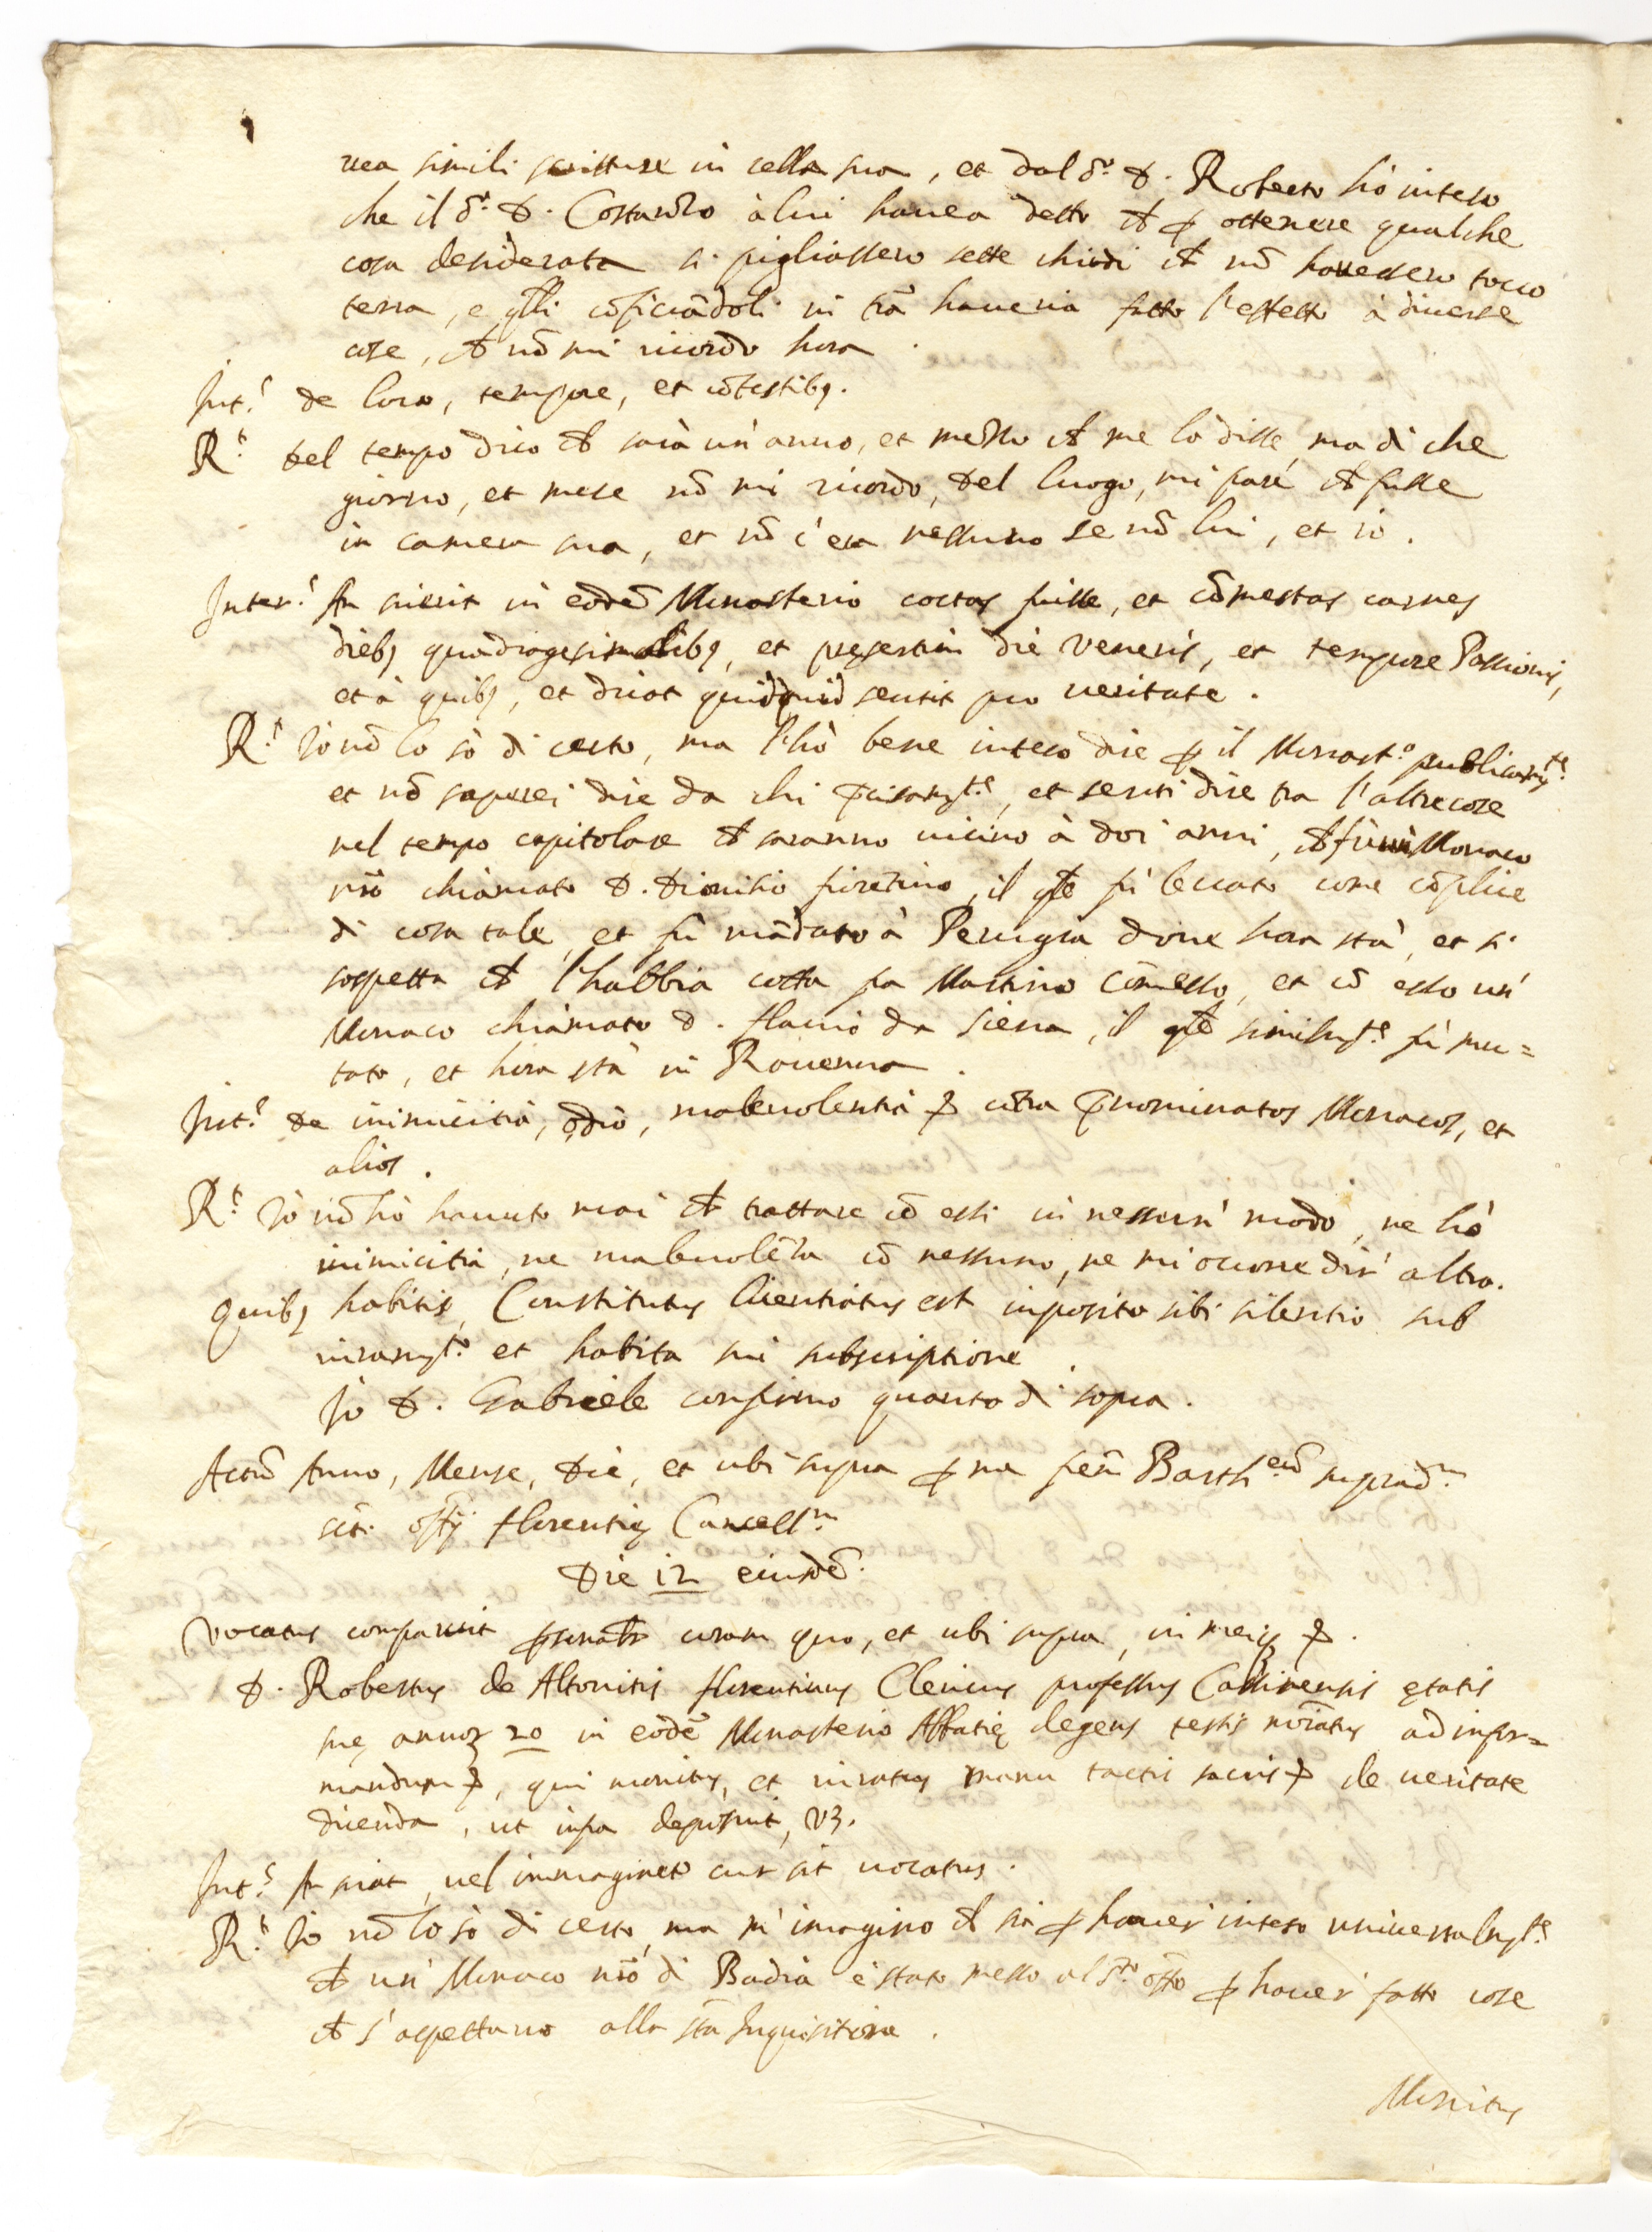 uea simili scritture in cella sua, et dal d.º D. Roberto hò inteso
che il d.º D. Costanzo à lui hauea detto ch p ottenere qualche
cosa desiderata si pigliassero sette chiodi ch nõ hauessero tocco
terra, e q̃lli cõficcãdoli in trã haueria fatto l'effetto à diuerse
cose, ch nõ mi ricordo hora.
Int.s de loco, tempore, et cõtestibq.
R.t del tempo dico ch sarà un' anno, et mezzo ch me lo disse, ma di che
giorno, et mese nõ mi ricordo, del luogo, mi pare ch fusse
in camera sua, et nõ c'era nessuno se nõ lui, et io.
Inter.s An sciuerit in eodẽ Monasterio coctas fuisse, et cõmestas carnes
diebq quadragesimalibq, et pręsertim die Veneris, et tempore Passionis,
et à quibq, et dicat quidquid sentit pro ueritate.
R.t Io nõ lo sò di certo, ma l'hò bene inteso dire p il Monast.º publicamte
et nõ saperei dire da chi p̃cisamte, et sentì dire tra l'altre cose
nel tempo capitolare ch saranno uicino à doi anni, ch fù un Monaco
nrõ chiamato D. Dionisio fiorẽtino, il q̃le fù leuato come cõplice
di cosa tale, et fù mãdato à Perugia doue hora stà, et si
sospetta ch l'habbia cotta fra Martino Cõmesso, et cõ esso un'
Monaco chiamato D. Flauio da Siena, il q̃le similmte fù mu=
tato, et hora stà in Rauenna.
Int.s de inimicitia, odio, maleuolentia & cõtra p̃nominatos Monacos, et
alios.
R.t Io nõ hò hauuto mai ch trattare cõ essi in nessun' modo, ne hò
inimicitia, ne maleuolẽza cõ nessuno, ne mi occorre dir' altro.
Quibq habitis, Constitutus licentiatus est imposito sibi silentio sub
iuramto et habita sui subscriptione.
Io D. Gabriele confirmo quanto di sopra.
Actũ Anno, Mense, Die, et ubi supra p me frẽm Barth.eũ suprad.m
sti. offij. florentię Cancell.m
Die 12 eiusdẽ.
Vocatus comparuit psonalr coram quo, et ubi supra, in meiq &.
D. Robertus de Altouitis florentinus Clericus professus Cassinensis ętatis
suę annoꝝ 20 in eodẽ Monasterio Abbatię degens testis noĩatus ad infor=
mandum &, qui monitus, et iuratus manu tactis sacris & de ueritate
dicenda, ut infra deposuit, vz.
Int.s An sciat, uel immaginet cur sit uocatus.
R.t Io nõ lo sò di certo, ma m' imagino ch sia p hauer' inteso uniuersalmte
ch un' Monaco nrõ di Badia è stato messo al s.to offo p hauer' fatto cose
ch s'aspettano alla sta Inquisitione.
Monitus